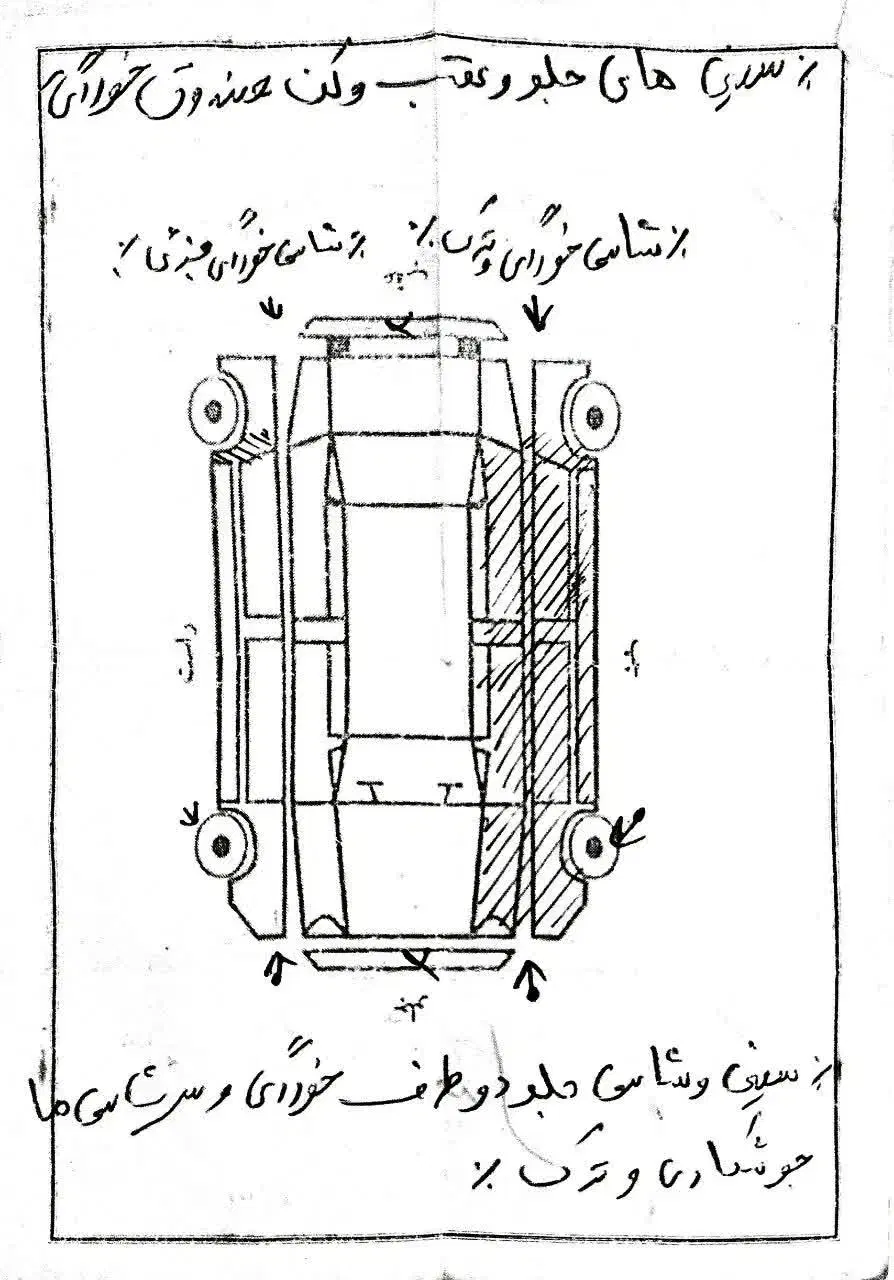 ٪ سینی های جلو و عقب و کف صندوق خوردگی
٪ شاسی خوردگی و ترک ٪
٪ شاسی خوردگی جزئی ٪
راست
چپ
٪ سینی و شاسی جلو دو طرف خوردگی و سر شاسی ها
جوشکاری و ترک ٪